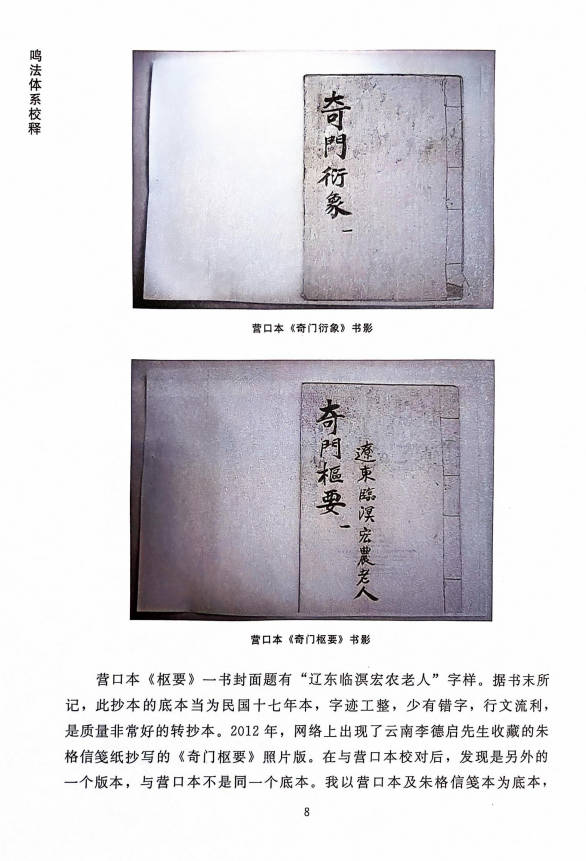 鸣法体系校释
奇門衍象
一
营口本《奇门衍象》书影
奇門樞要
一
遼東臨溟宏農老人
营口本《奇门枢要》书影
营口本《枢要》一书封面题有“辽东临溟宏农老人”字样。据书末所
记，此抄本的底本当为民国十七年本，字迹工整，少有错字，行文流利，
是质量非常好的转抄本。2012 年，网络上出现了云南李德启先生收藏的朱
格信笺纸抄写的《奇门枢要》照片版。在与营口本校对后，发现是另外的
一个版本，与营口本不是同一个底本。我以营口本及朱格信笺本为底本，
8